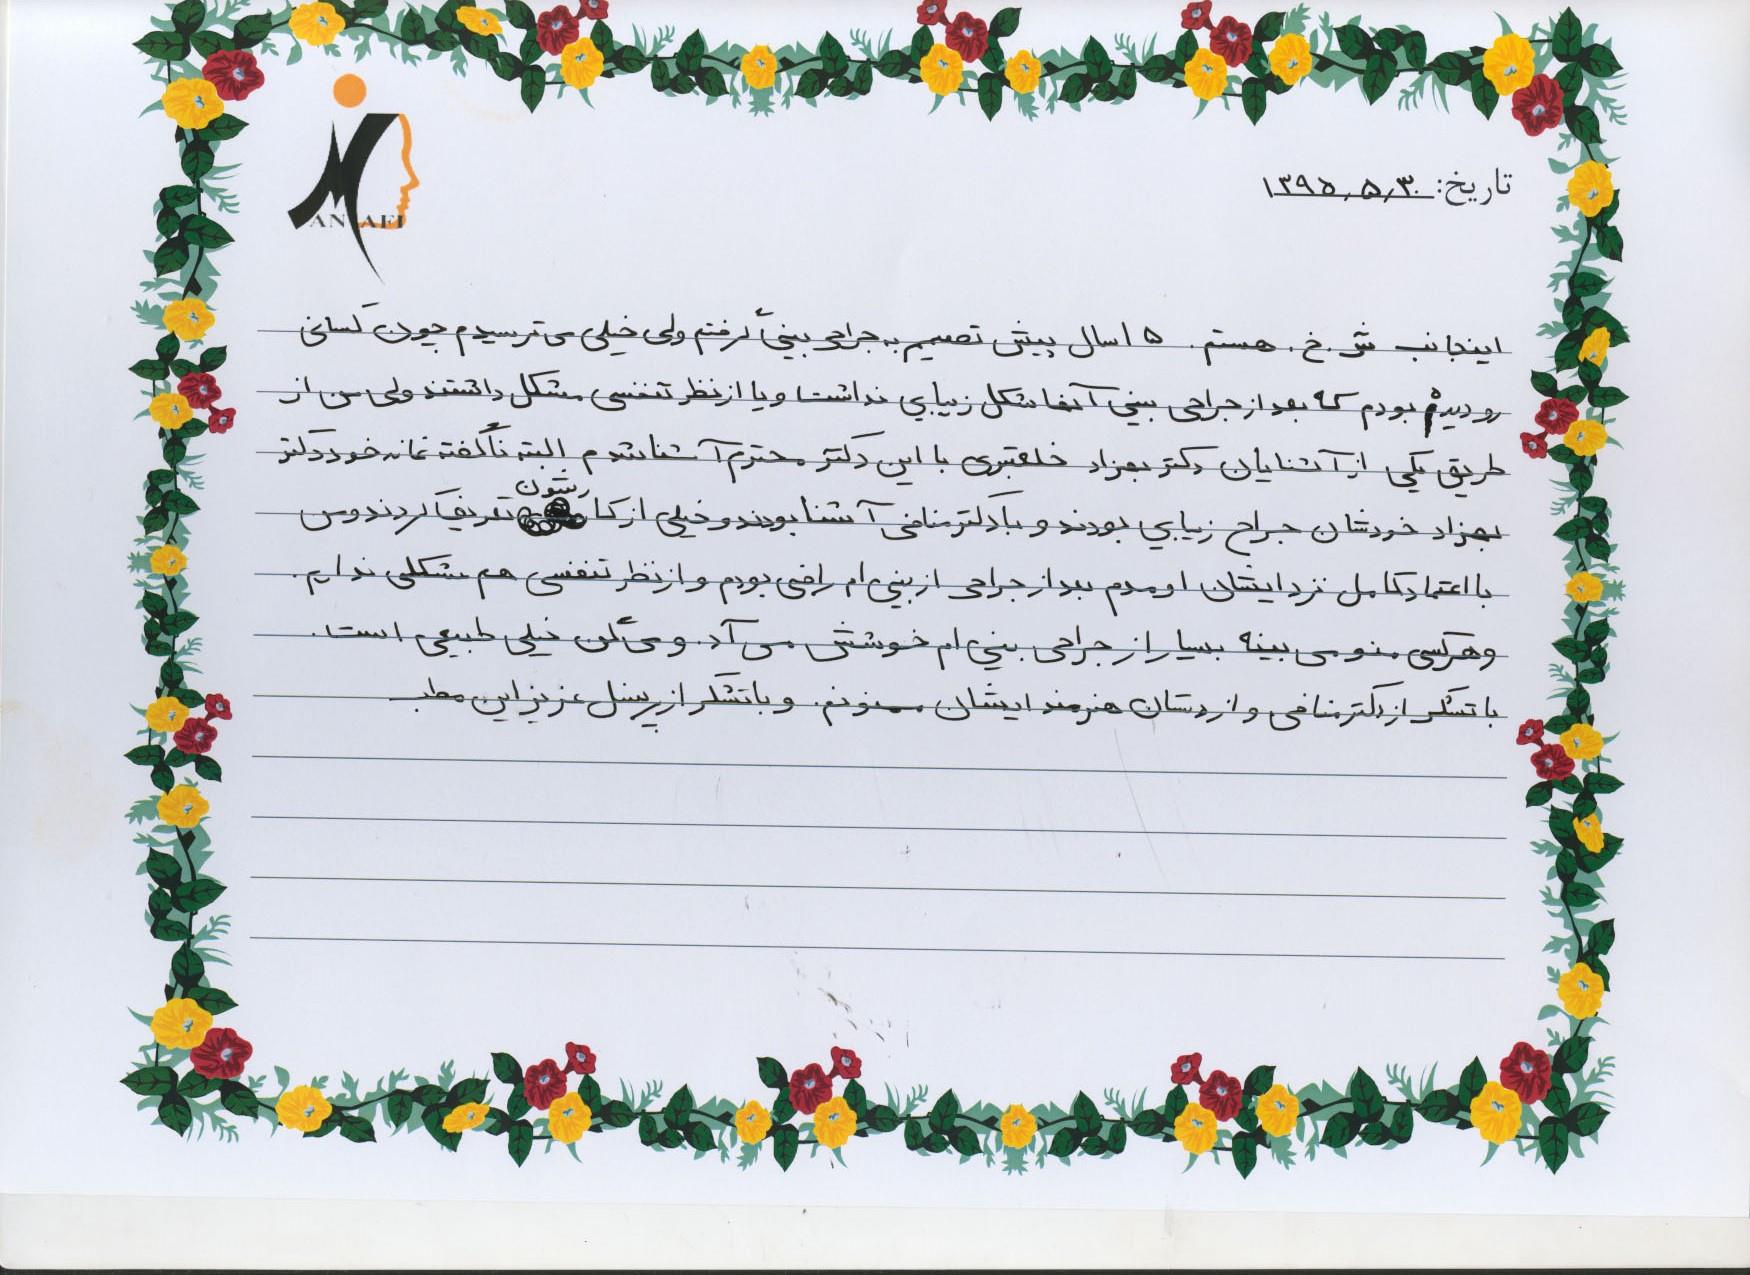 MANAFI
تاریخ: ۱۳۹۵/۵/۳۰
اینجانب ش. خ. هستم. ۱۵ سال پیش تصمیم به جراحی بینی گرفتم ولی خیلی می ترسیدم چون کسانی
رو دیده بودم که بعد از جراحی بینی آنها شکل زیبایی نداشت و یا از نظر تنفسی مشکل داشتند ولی من از
طریق یکی از آشنایان دکتر بهزاد با این دکتر محترم آشنا شدم البته ناگفته نمانه خود دکتر
بهزاد خودشان جراح زیبایی بودند و با دکتر منافی آشنا بودند و خیلی از کارشون تعریف کردند و من
با اعتماد کامل نزد ایشان اومدم بعد از جراحی از بینی ام راضی بودم و از نظر تنفسی هم مشکلی ندارم.
و هر کسی منو می بینه بسیار از جراحی بینی ام خوشش می آد. و می گن خیلی طبیعی است.
با تشکر از دکتر منافی و از دستان هنرمند ایشان ممنونم. و با تشکر از پرسنل عزیز این مطب